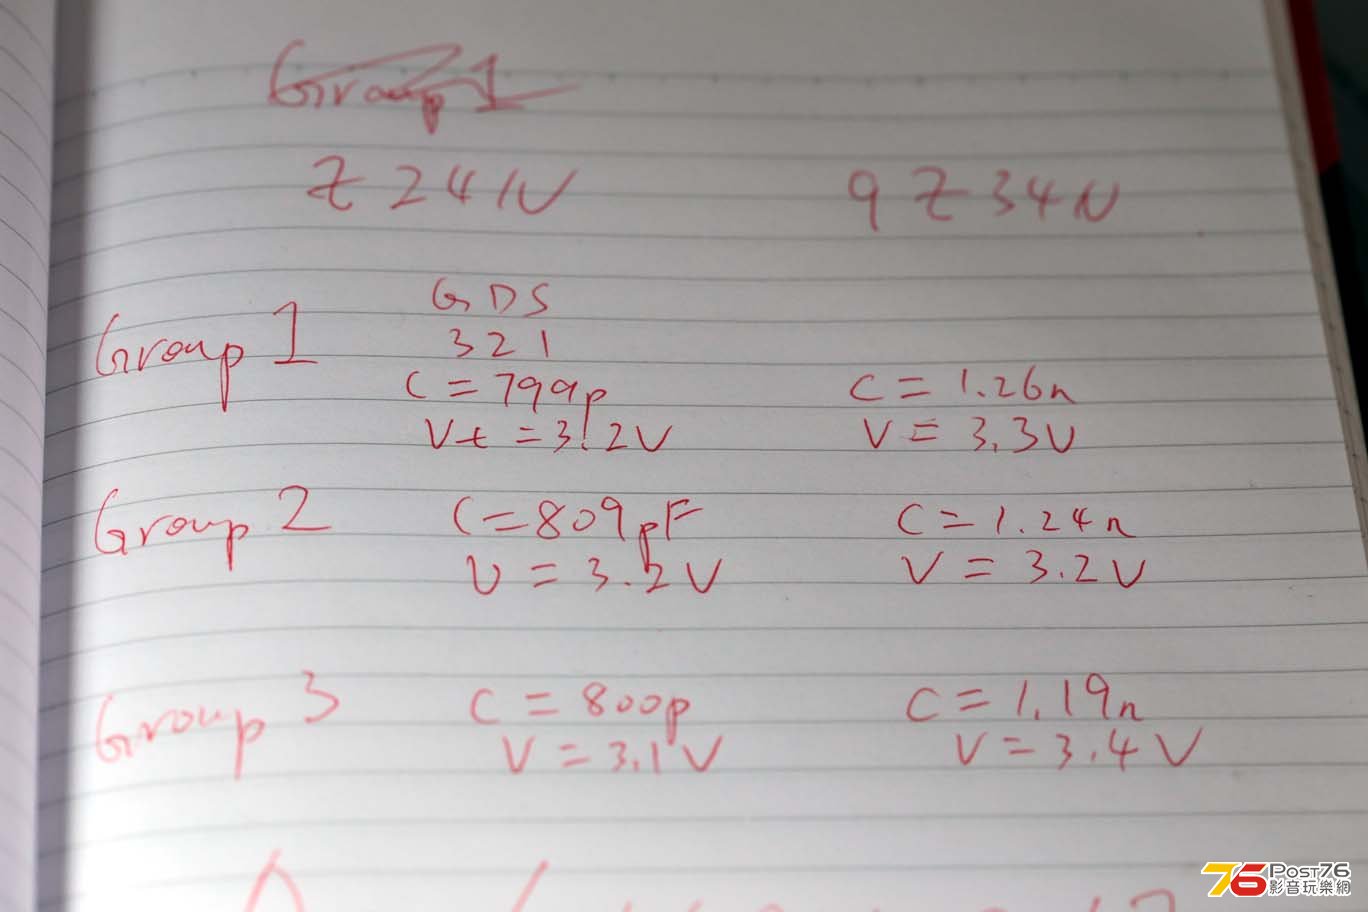 Group 1
Z24N 9Z34N
GDS
Group 1 321
C = 799p C = 1.26n
Vt = 3.2V V = 3.3V
Group 2 C = 809pF C = 1.24n
V = 3.2V V = 3.2V
Group 3 C = 800p C = 1.19n
V = 3.1V V = 3.4V
76 POST76
影音玩樂網